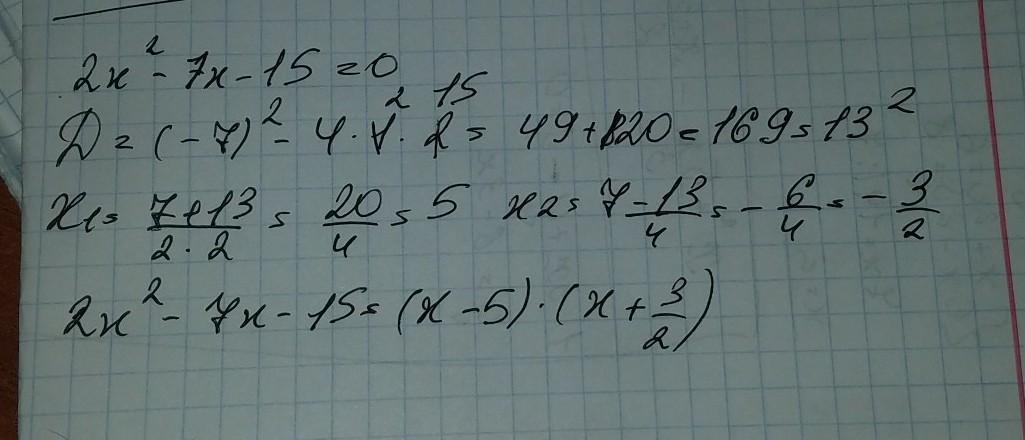 2x² - 7x - 15 = 0
D = (-7)² - 4 · 2 · 15 = 49 + 120 = 169 = 13²
x1 = 7+13/2·2 = 20/4 = 5 x2 = 7-13/4 = -6/4 = -3/2
2x² - 7x - 15 = (x - 5) · (x + 3/2)